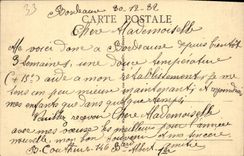 33 Bordeaux 30.12.32
CARTE POSTALE
Chère Mademoiselle
Me voici donc à Bordeaux depuis bientôt
3 semaines, une douce température
(+15°) aide à mon rétablissement, je me
sens un peu mieux maintenant.
mes enfants dans quelque temps.
Veuillez recevoir Chère Mademoiselle
avec mes vœux les meilleurs pour l'année
nouvelle, mon bon souvenir
146 Albert